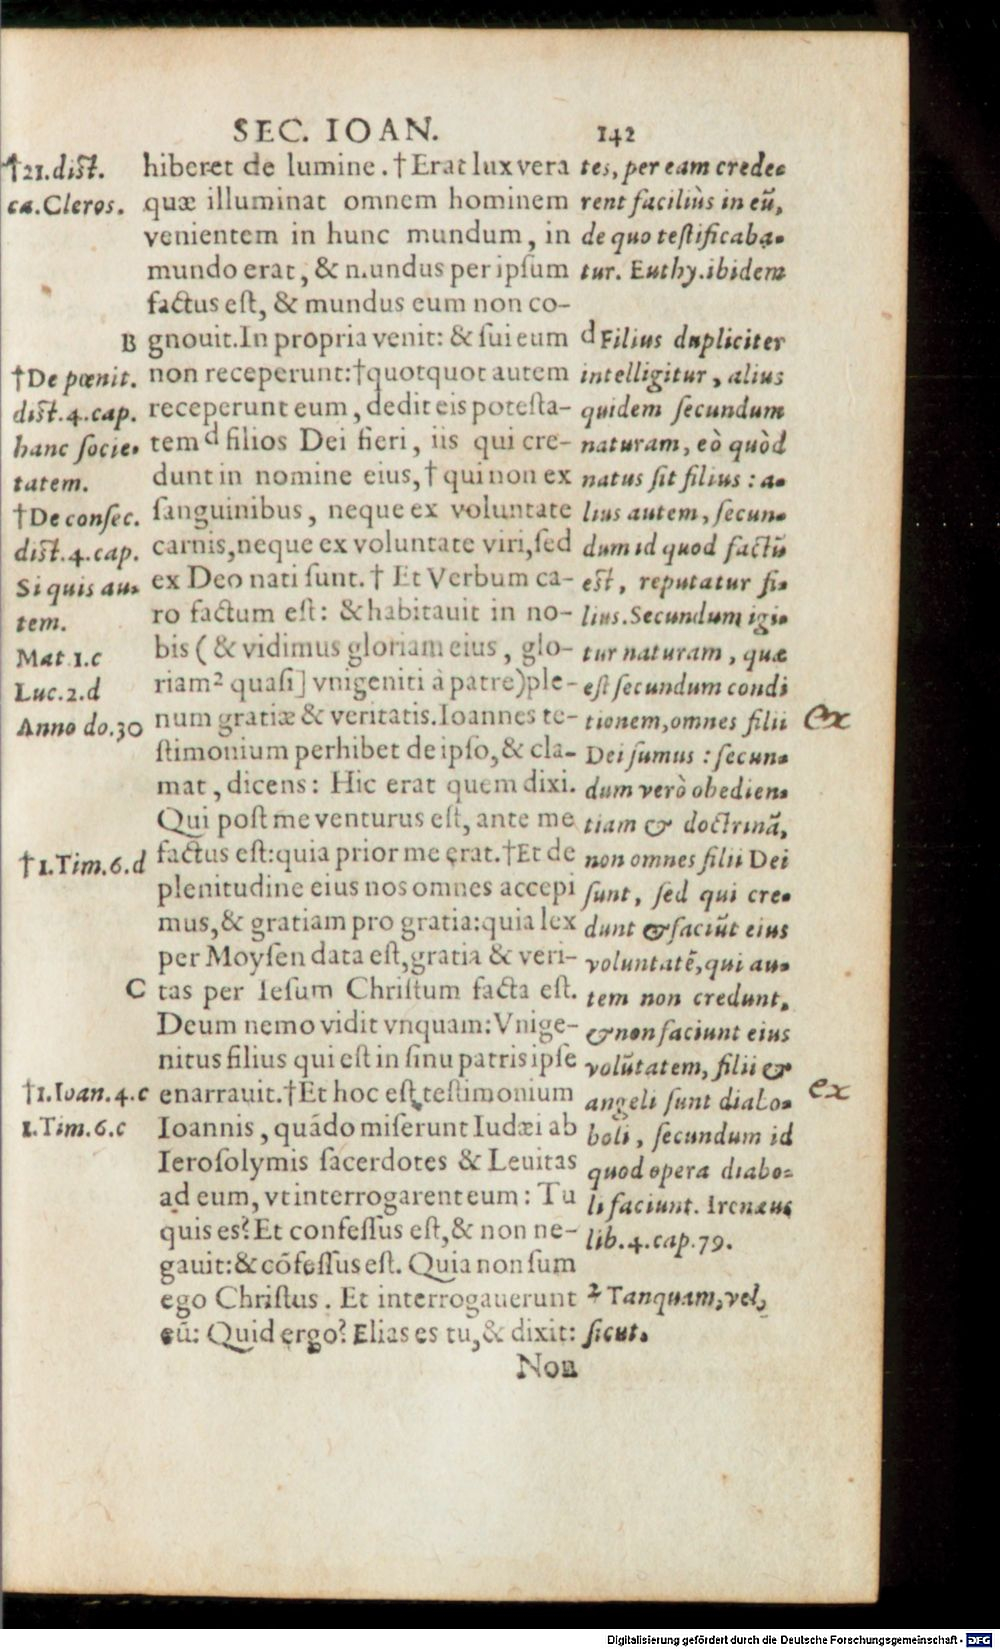 SEC. IOAN. 142
†21.dist.
ca.Cleros.
B
†De pœnit.
dist.4.cap.
hanc socie-
tatem.
†De consec.
dist.4.cap.
Si quis au-
tem.
Mat.1.c
Luc.2.d
Anno do.30
†1.Tim.6.d
C
†1.Ioan.4.c
1.Tim.6.c
hiberet de lumine. † Erat lux vera
quæ illuminat omnem hominem
venientem in hunc mundum, in
mundo erat, & mundus per ipsum
factus est, & mundus eum non co-
gnouit. In propria venit: & sui eum
non receperunt: †quotquot autem
receperunt eum, dedit eis potesta-
tem ᵈ filios Dei fieri, iis qui cre-
dunt in nomine eius, † qui non ex
sanguinibus, neque ex voluntate
carnis, neque ex voluntate viri, sed
ex Deo nati sunt. † Et Verbum ca-
ro factum est: & habitauit in no-
bis ( & vidimus gloriam eius, glo-
riam² quasi] vnigeniti à patre) ple-
num gratiæ & veritatis. Ioannes te-
stimonium perhibet de ipso, & cla-
mat, dicens: Hic erat quem dixi.
Qui post me venturus est, ante me
factus est: quia prior me erat. †Et de
plenitudine eius nos omnes accepi
mus, & gratiam pro gratia: quia lex
per Moysen data est, gratia & veri-
tas per Iesum Christum facta est.
Deum nemo vidit vnquam: Vnige-
nitus filius qui est in sinu patris ipse
enarrauit. †Et hoc est testimonium
Ioannis, quādo miserunt Iudæi ab
Ierosolymis sacerdotes & Leuitas
ad eum, vt interrogarent eum: Tu
quis es? Et confessus est, & non ne-
gauit: & cōfessus est. Quia non sum
ego Christus. Et interrogauerunt
eū: Quid ergo? Elias es tu, & dixit:
Non
tes, per eam crede-
rent faciliùs in eū,
de quo testificaba-
tur. Euthy. ibidem
ᵈ Filius dupliciter
intelligitur, alius
quidem secundum
naturam, eò quòd
natus sit filius: a-
lius autem, secun-
dum id quod factū
est, reputatur fi-
lius. Secundum igi-
tur naturam, quæ
est secundum condi
tionem, omnes filii
Dei sumus: secun-
dum verò obedien-
tiam & doctrinā,
non omnes filii Dei
sunt, sed qui cre-
dunt & faciūt eius
voluntatē, qui au-
tem non credunt,
& non faciunt eius
volūtatem, filii &
angeli sunt diabo-
boli, secundum id
quod opera diabo-
li faciunt. Irenæus
lib.4.cap.79.
² Tanquam, vel,
sicut.
ex
ex
Digitalisierung gefördert durch die Deutsche Forschungsgemeinschaft - DFG